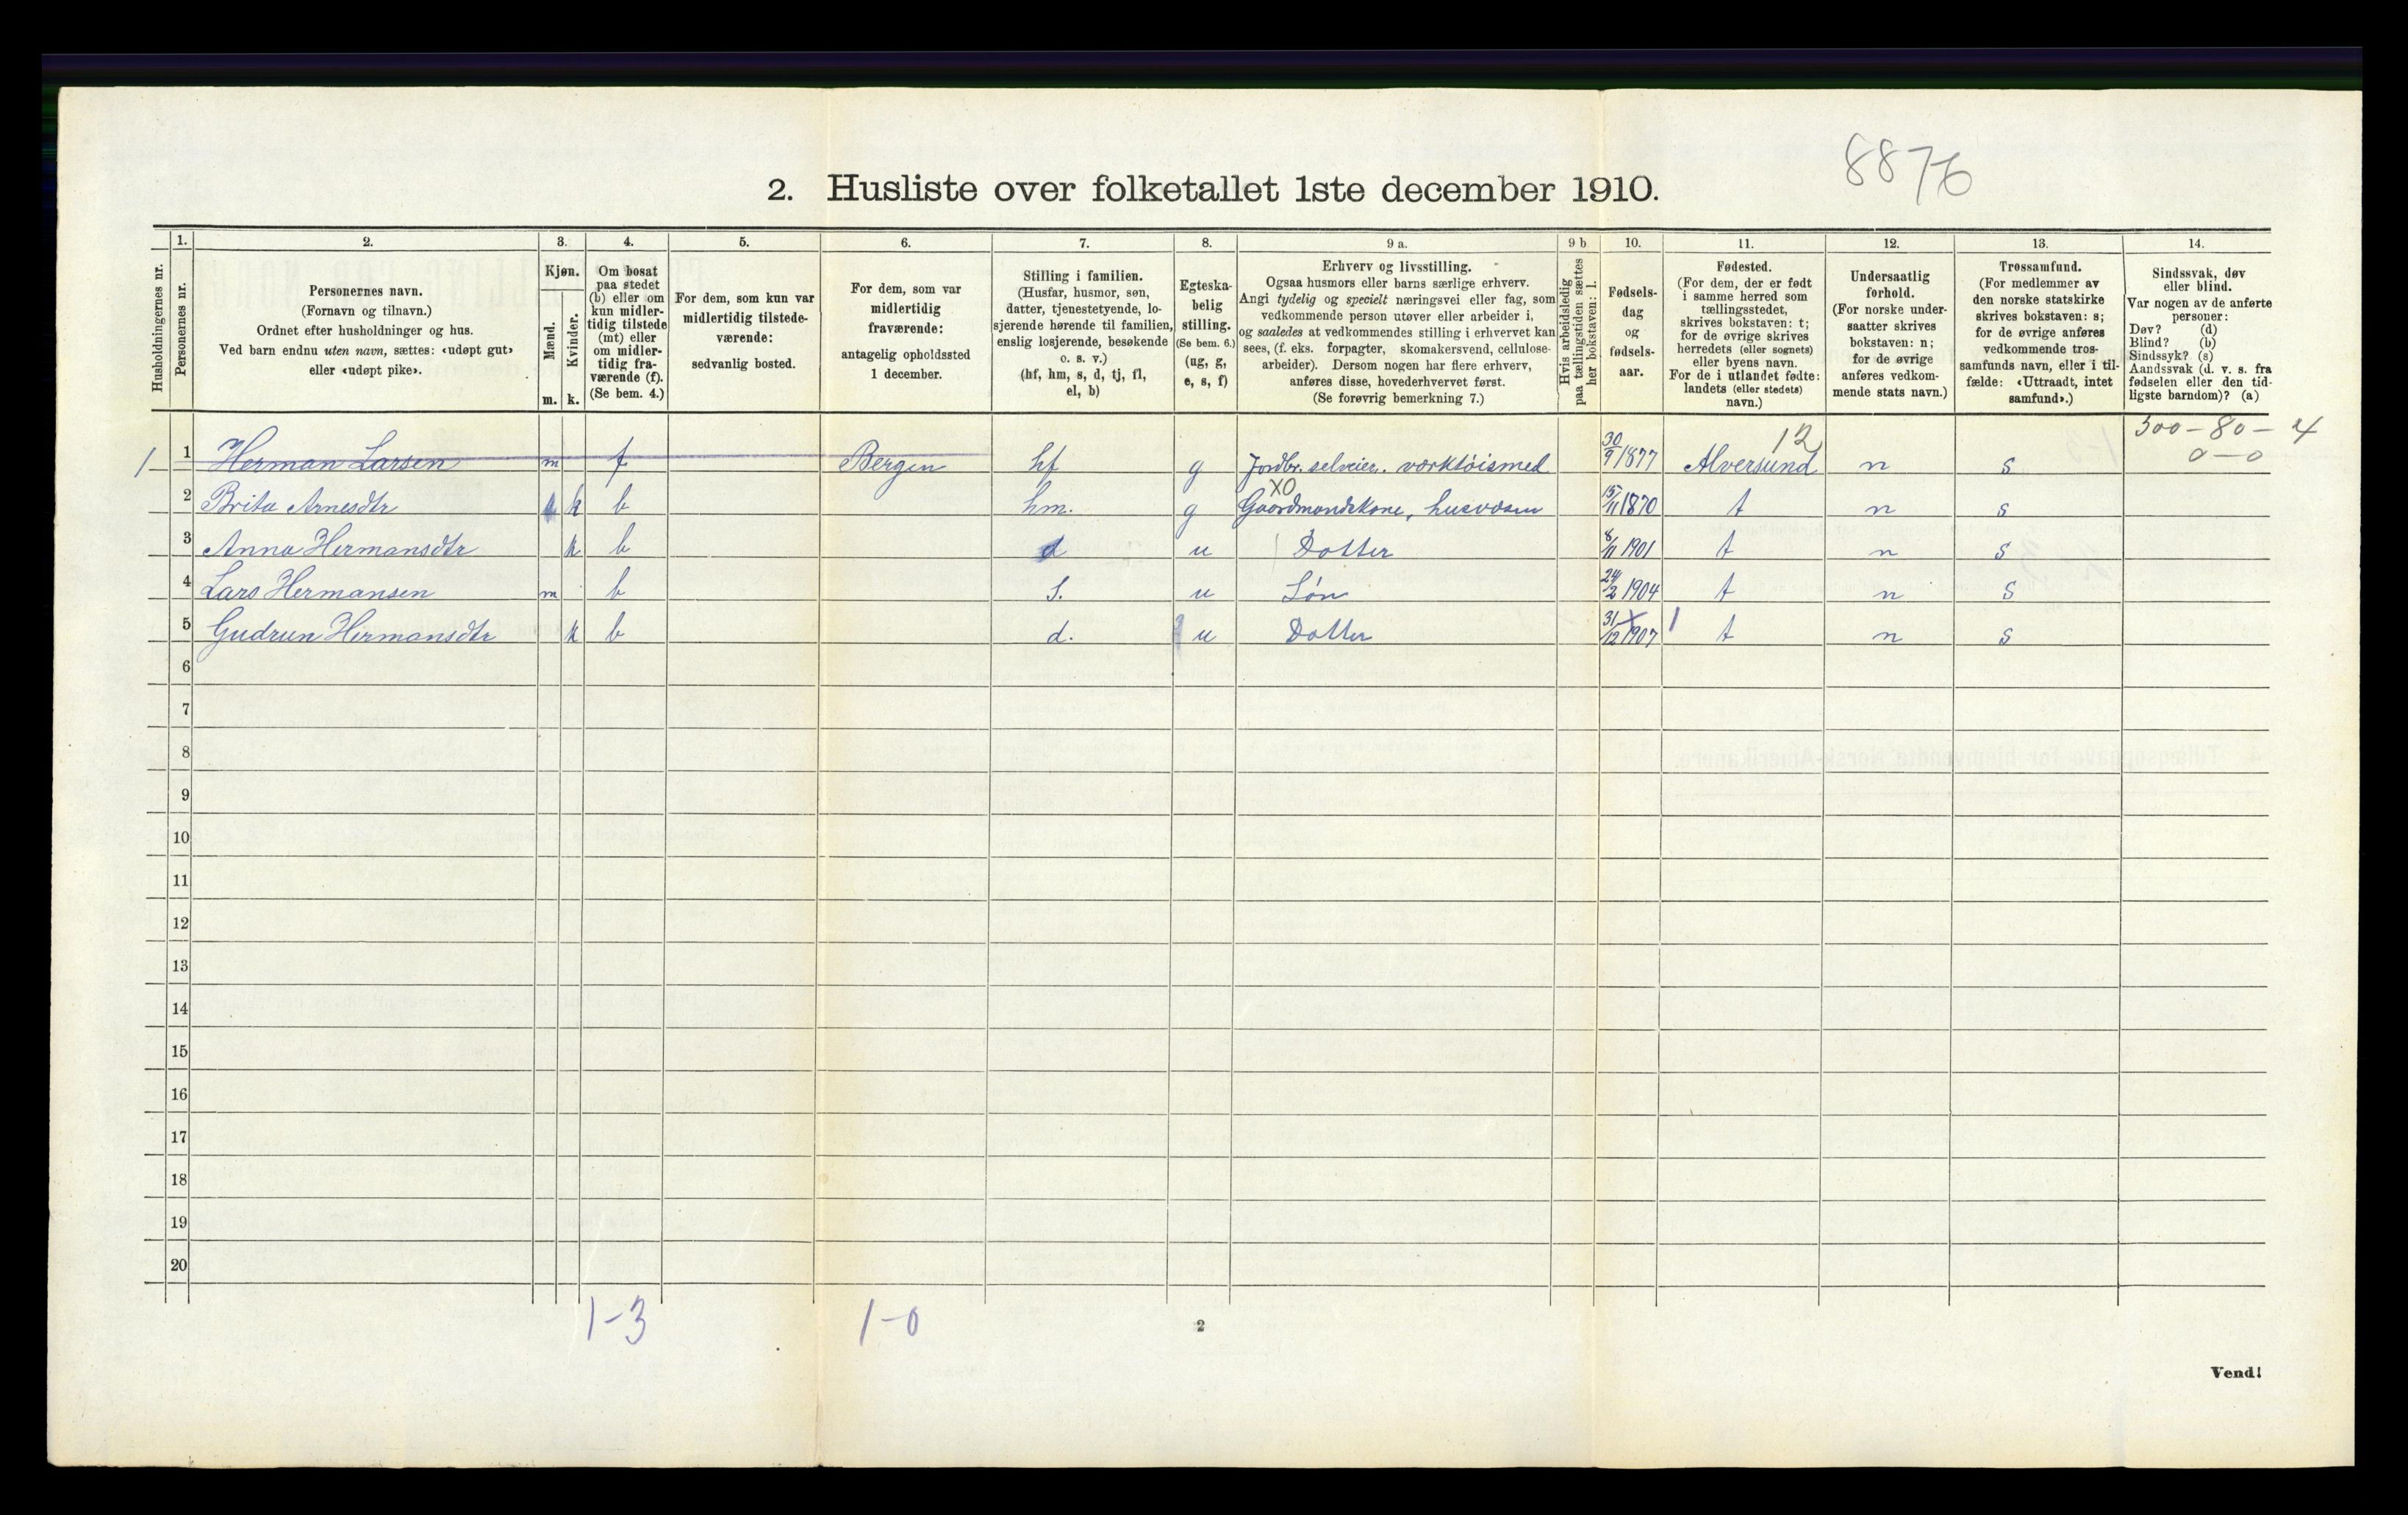 8876
2. Husliste over folketallet 1ste december 1910.
Husholdningernes nr.
1.
Personernes nr.
2.
Personernes navn.
(Fornavn og tilnavn.)
Ordnet efter husholdninger og hus.
Ved barn endnu uten navn, sættes: «udøpt gut»
eller «udøpt pike».
3.
Kjøn.
Mænd.
Kvinder.
m. k.
4.
Om bosat
paa stedet
(b) eller om
kun midler-
tidig tilstede
(mt) eller
om midler-
tidig fra-
værende (f).
(Se bem. 4.)
5.
For dem, som kun var
midlertidig tilstede-
værende:
sedvanlig bosted.
6.
For dem, som var
midlertidig
fraværende:
antagelig opholdssted
1 december.
7.
Stilling i familien.
(Husfar, husmor, søn,
datter, tjenestetyende, lo-
sjerende hørende til familien,
enslig losjerende, besøkende
o. s. v.)
(hf, hm, s, d, tj, fl,
el, b)
8.
Egteska-
belig
stilling.
(Se bem. 6.)
(ug, g,
e, s, f)
9 a.
Erhverv og livsstilling.
Ogsaa husmors eller barns særlige erhverv.
Angi tydelig og specielt næringsvei eller fag, som
vedkommende person utøver eller arbeider i,
og saaledes at vedkommendes stilling i erhvervet kan
sees, (f. eks. forpagter, skomakersvend, cellulose-
arbeider). Dersom nogen har flere erhverv,
anføres disse, hovederhvervet først.
(Se forøvrig bemerkning 7.)
9 b
Hvis arbeidsledig
paa tællingstiden sættes
her bokstaven: l.
10.
Fødsels-
dag
og
fødsels-
aar.
11.
Fødested.
(For dem, der er født
i samme herred som
tællingsstedet,
skrives bokstaven: t;
for de øvrige skrives
herredets (eller sognets)
eller byens navn.
For de i utlandet fødte:
landets (eller stedets)
navn.)
12.
Undersaatlig
forhold.
(For norske under-
saatter skrives
bokstaven: n;
for de øvrige
anføres vedkom-
mende stats navn.)
13.
Trossamfund.
(For medlemmer av
den norske statskirke
skrives bokstaven: s;
for de øvrige anføres
vedkommende tros-
samfunds navn, eller i til-
fælde: «Uttraadt, intet
samfund».)
14.
Sindssvak, døv
eller blind.
Var nogen av de anførte
personer:
Døv? (d)
Blind? (b)
Sindssyk? (s)
Aandssvak (d. v. s. fra
fødselen eller den tid-
ligste barndom)? (a)
300-80-4
0-0
12
1 1 Herman Larsen m f Bergen hf g Jordbr. selveier. værktøismed 30/9 1877 Alversund n s
XO
2 Brita Arnesdtr k b hm. g Gaardmandskone, husvæsen 15/11 1870 t n s
3 Anna Hermansdtr k b d u Datter 8/11 1901 t n s
4 Lars Hermansen m b s. u Søn 24/2 1904 t n s
5 Gudrun Hermansdtr k b d. u Datter 31/12 1907 t n s
6
7
8
9
10
11
12
13
14
15
16
17
18
19
20
1-3 1-0
2
Vend!